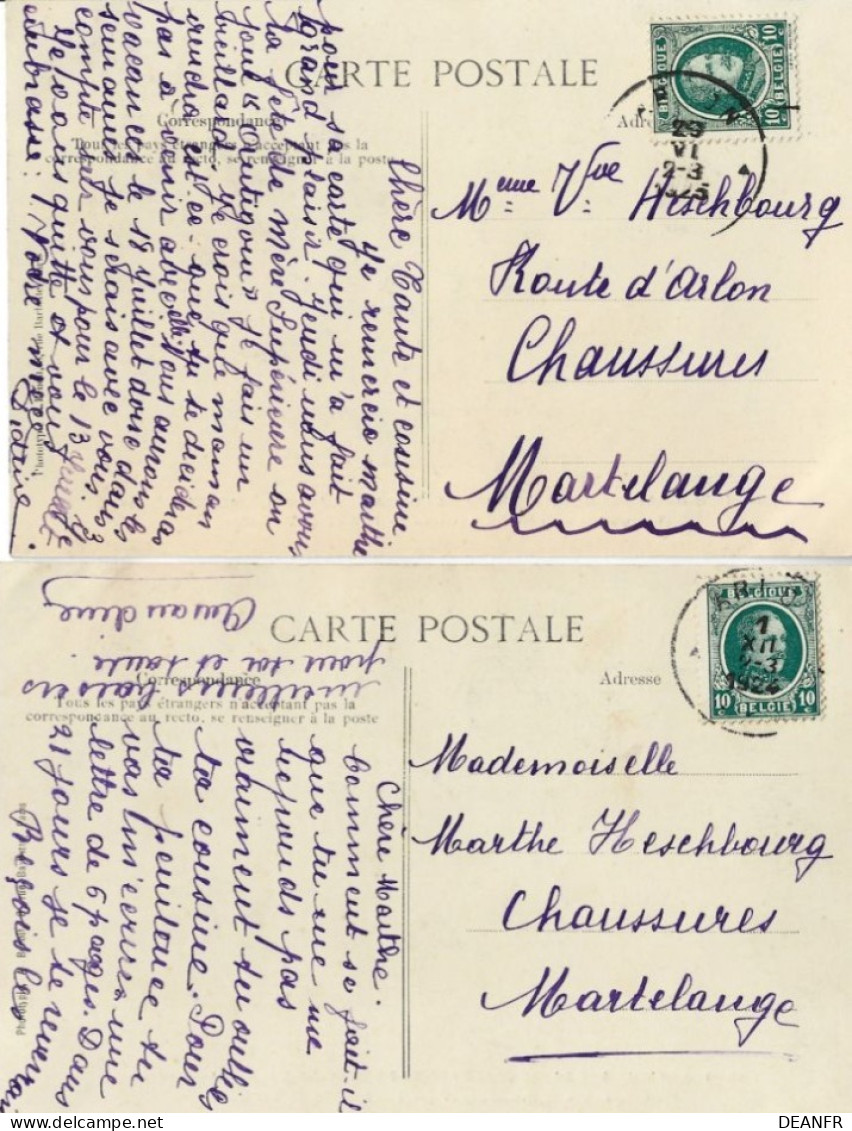 CARTE POSTALE
Correspondance
Tous les pays étrangers n'acceptant pas la
correspondance au recto, se renseigner à la poste
BELGIQUE
10
10
BELGIE
29
VI
2-3
1925
Mme Vve Heschbourg
Route d'Arlon
Chaussures
Martelange
Chère Tante et cousine
Je remercie Marthe
pour sa carte qui m'a fait
grand plaisir. Jeudi nous avons
la fête de mère Supérieure on
joue "Antigone" je fais un
vieillard. Je crois que maman
viendra est-ce que tu te décideras
pas à venir avec elle. Nous aurons les
vacances le 18 juillet donc dans
semaines je serais avec vous. Je
compte sur vous pour le 13
Je vous quitte et vous
embrasse. Votre nièce
CARTE POSTALE
Correspondance
Adresse
Tous les pays étrangers n'acceptant pas la
correspondance au recto, se renseigner à la poste
BELGIQUE
ARLO
1
XII
2-3
10
10
BELGIE
Mademoiselle
Marthe Heschbourg
Chaussures
Martelange
Chère Marthe.
Comment se fait-il
que tu ne me
reponds pas
vraiment tu oublies
ta cousine. Pour
ta penitence tu
vas m'ecrire une
lettre de 6 pages. Dans
21 jours je te reverrai
Reçois les
meilleurs baisers
pour toi et tante
DEANFR